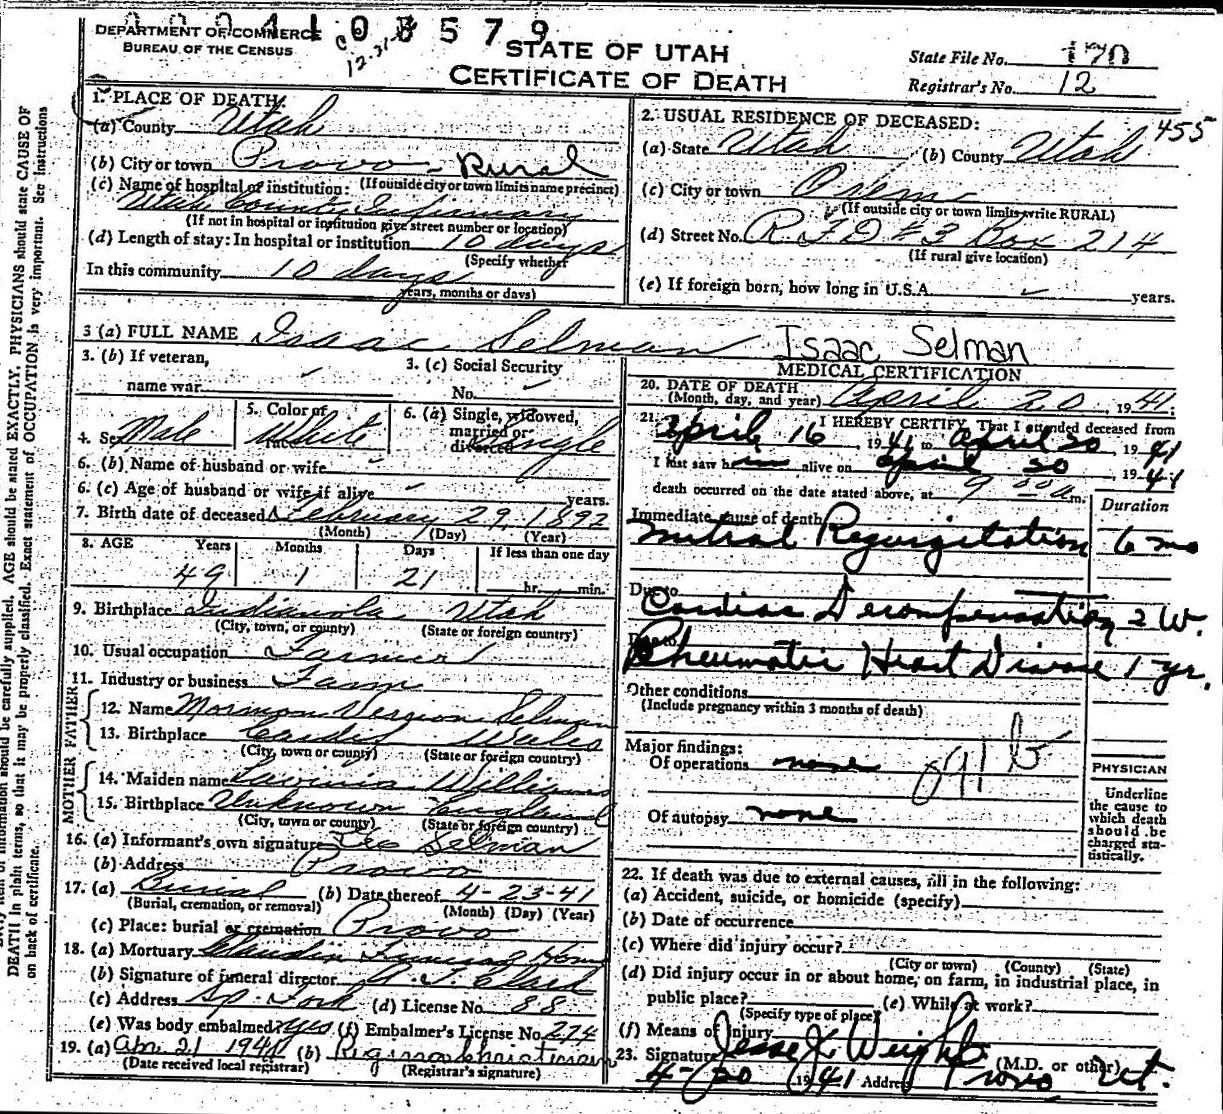 DEPARTMENT OF COMMERCE
BUREAU OF THE CENSUS
12-31
108579
STATE OF UTAH
CERTIFICATE OF DEATH
State File No. 170
Registrar's No. 12
1. PLACE OF DEATH:
(a) County Utah
(b) City or town Provo - Rural
(If outside city or town limits name precinct)
(c) Name of hospital of institution:
Utah County Infirmary
(If not in hospital or institution give street number or location)
(d) Length of stay: In hospital or institution 10 days
(Specify whether
In this community 10 days
years, months or days)
2. USUAL RESIDENCE OF DECEASED: 455
(a) State Utah (b) County Utah
(c) City or town Orem
(If outside city or town limits write RURAL)
(d) Street No. R.F.D #3 Box 214
(If rural give location)
(e) If foreign born, how long in U.S.A. years.
3 (a) FULL NAME Isaac Selman Isaac Selman
3. (b) If veteran,
name war
3. (c) Social Security
No.
4. Sex Male
5. Color of race White
6. (a) Single, widowed, married or divorced Single
6. (b) Name of husband or wife
6. (c) Age of husband or wife if alive years.
7. Birth date of deceased February 29, 1892
(Month) (Day) (Year)
8. AGE Years Months Days If less than one day
49 1 21 hr. min.
9. Birthplace Indianola Utah
(City, town, or county) (State or foreign country)
10. Usual occupation Farmer
11. Industry or business Farm
FATHER
12. Name Mormon Vernon Selman
13. Birthplace Cardif Wales
(City, town or county) (State or foreign country)
MOTHER
14. Maiden name Lavinia Williams
15. Birthplace Unknown England
(City, town or county) (State or foreign country)
16. (a) Informant's own signature Leo Selman
(b) Address Provo
17. (a) Burial (b) Date thereof 4-23-41
(Burial, cremation, or removal) (Month) (Day) (Year)
(c) Place: burial or cremation Provo
18. (a) Mortuary Claudin Funeral Home
(b) Signature of funeral director A. J. Clark
(c) Address Sp. Fork (d) License No. 88
(e) Was body embalmed? Yes (f) Embalmer's License No. 274
19. (a) Apr. 21 1941 (b) Regina Christensen
(Date received local registrar) (Registrar's signature)
MEDICAL CERTIFICATION
20. DATE OF DEATH
(Month, day, and year) April 20, 1941
21. I HEREBY CERTIFY, That I attended deceased from
April 16 1941 to April 20 1941
I last saw him alive on April 20 1941
death occurred on the date stated above, at 9 00 a m.
Duration
Immediate cause of death
Mitral Regurgitation 6 mo
Due to
Cardiac Decompensation 2 W.
Due to
Rheumatic Heart Disease 1 yr.
Other conditions
(Include pregnancy within 3 months of death)
Major findings:
Of operations none
Of autopsy none
PHYSICIAN
Underline
the cause to
which death
should be
charged sta-
tistically.
22. If death was due to external causes, fill in the following:
(a) Accident, suicide, or homicide (specify)
(b) Date of occurrence
(c) Where did injury occur?
(City or town) (County) (State)
(d) Did injury occur in or about home, on farm, in industrial place, in
public place? (e) While at work?
(Specify type of place)
(f) Means of Injury
23. Signature Jesse J. Weight (M.D. or other)
4-20 1941 Address Provo Ut.
DEATH in plain terms, so that it may be properly classified. Exact statement of OCCUPATION is very important. See instructions
on back of certificate.
information should be carefully supplied. AGE should be stated EXACTLY. PHYSICIANS should state CAUSE OF